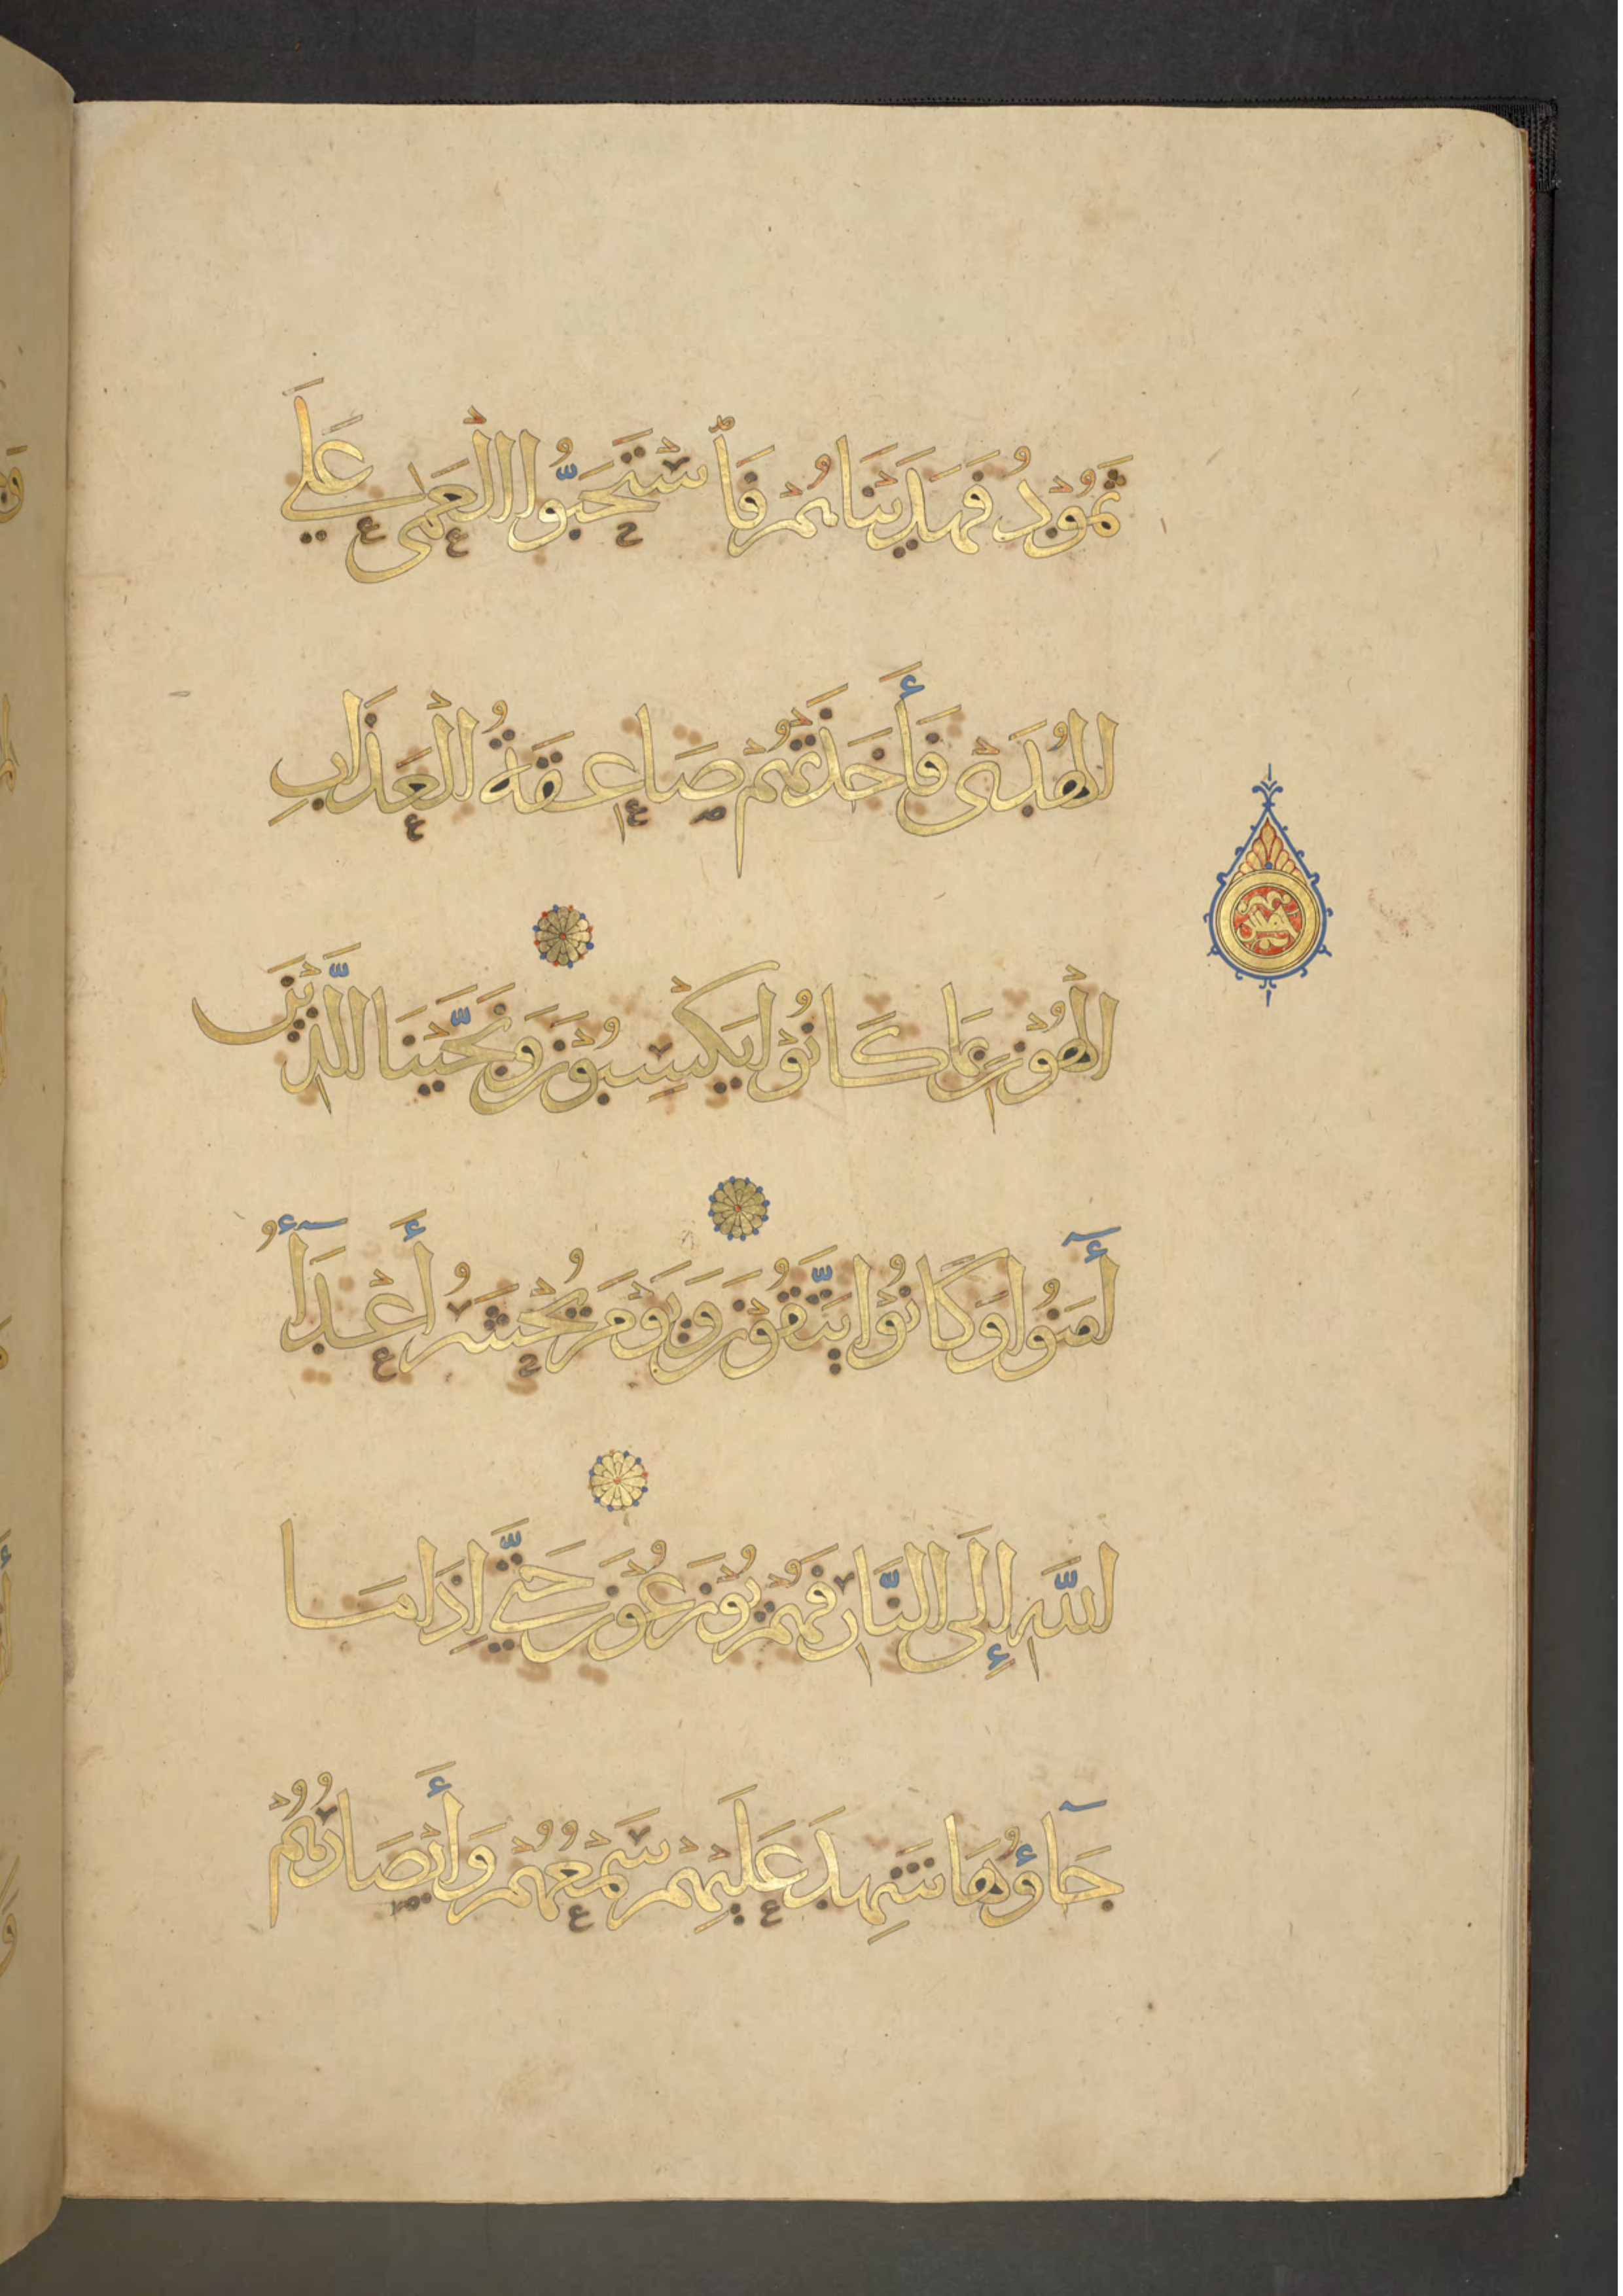 ثَمُوْدُ فَهَدَيْنَاهُمْ فَاسْتَحَبُّوا الْعَمَى عَلَى
الْهُدَىٰ فَأَخَذَتْهُمْ صَاعِقَةُ الْعَذَابِ
الْهُوْنِ بِمَا كَانُوْا يَكْسِبُوْنَ وَنَجَّيْنَا الَّذِيْنَ
أٓمَنُوا وَكَانُوْا يَتَّقُوْنَ وَيَوْمَ يُحْشَرُ أَعْدَآءُ
اللَّهِ إِلَى النَّارِ فَهُمْ يُوْزَعُوْنَ حَتَّى إِذَا مَا
جَآؤُهَا شَهِدَ عَلَيْهِمْ سَمْعُهُمْ وَأَبْصَارُهُمْ